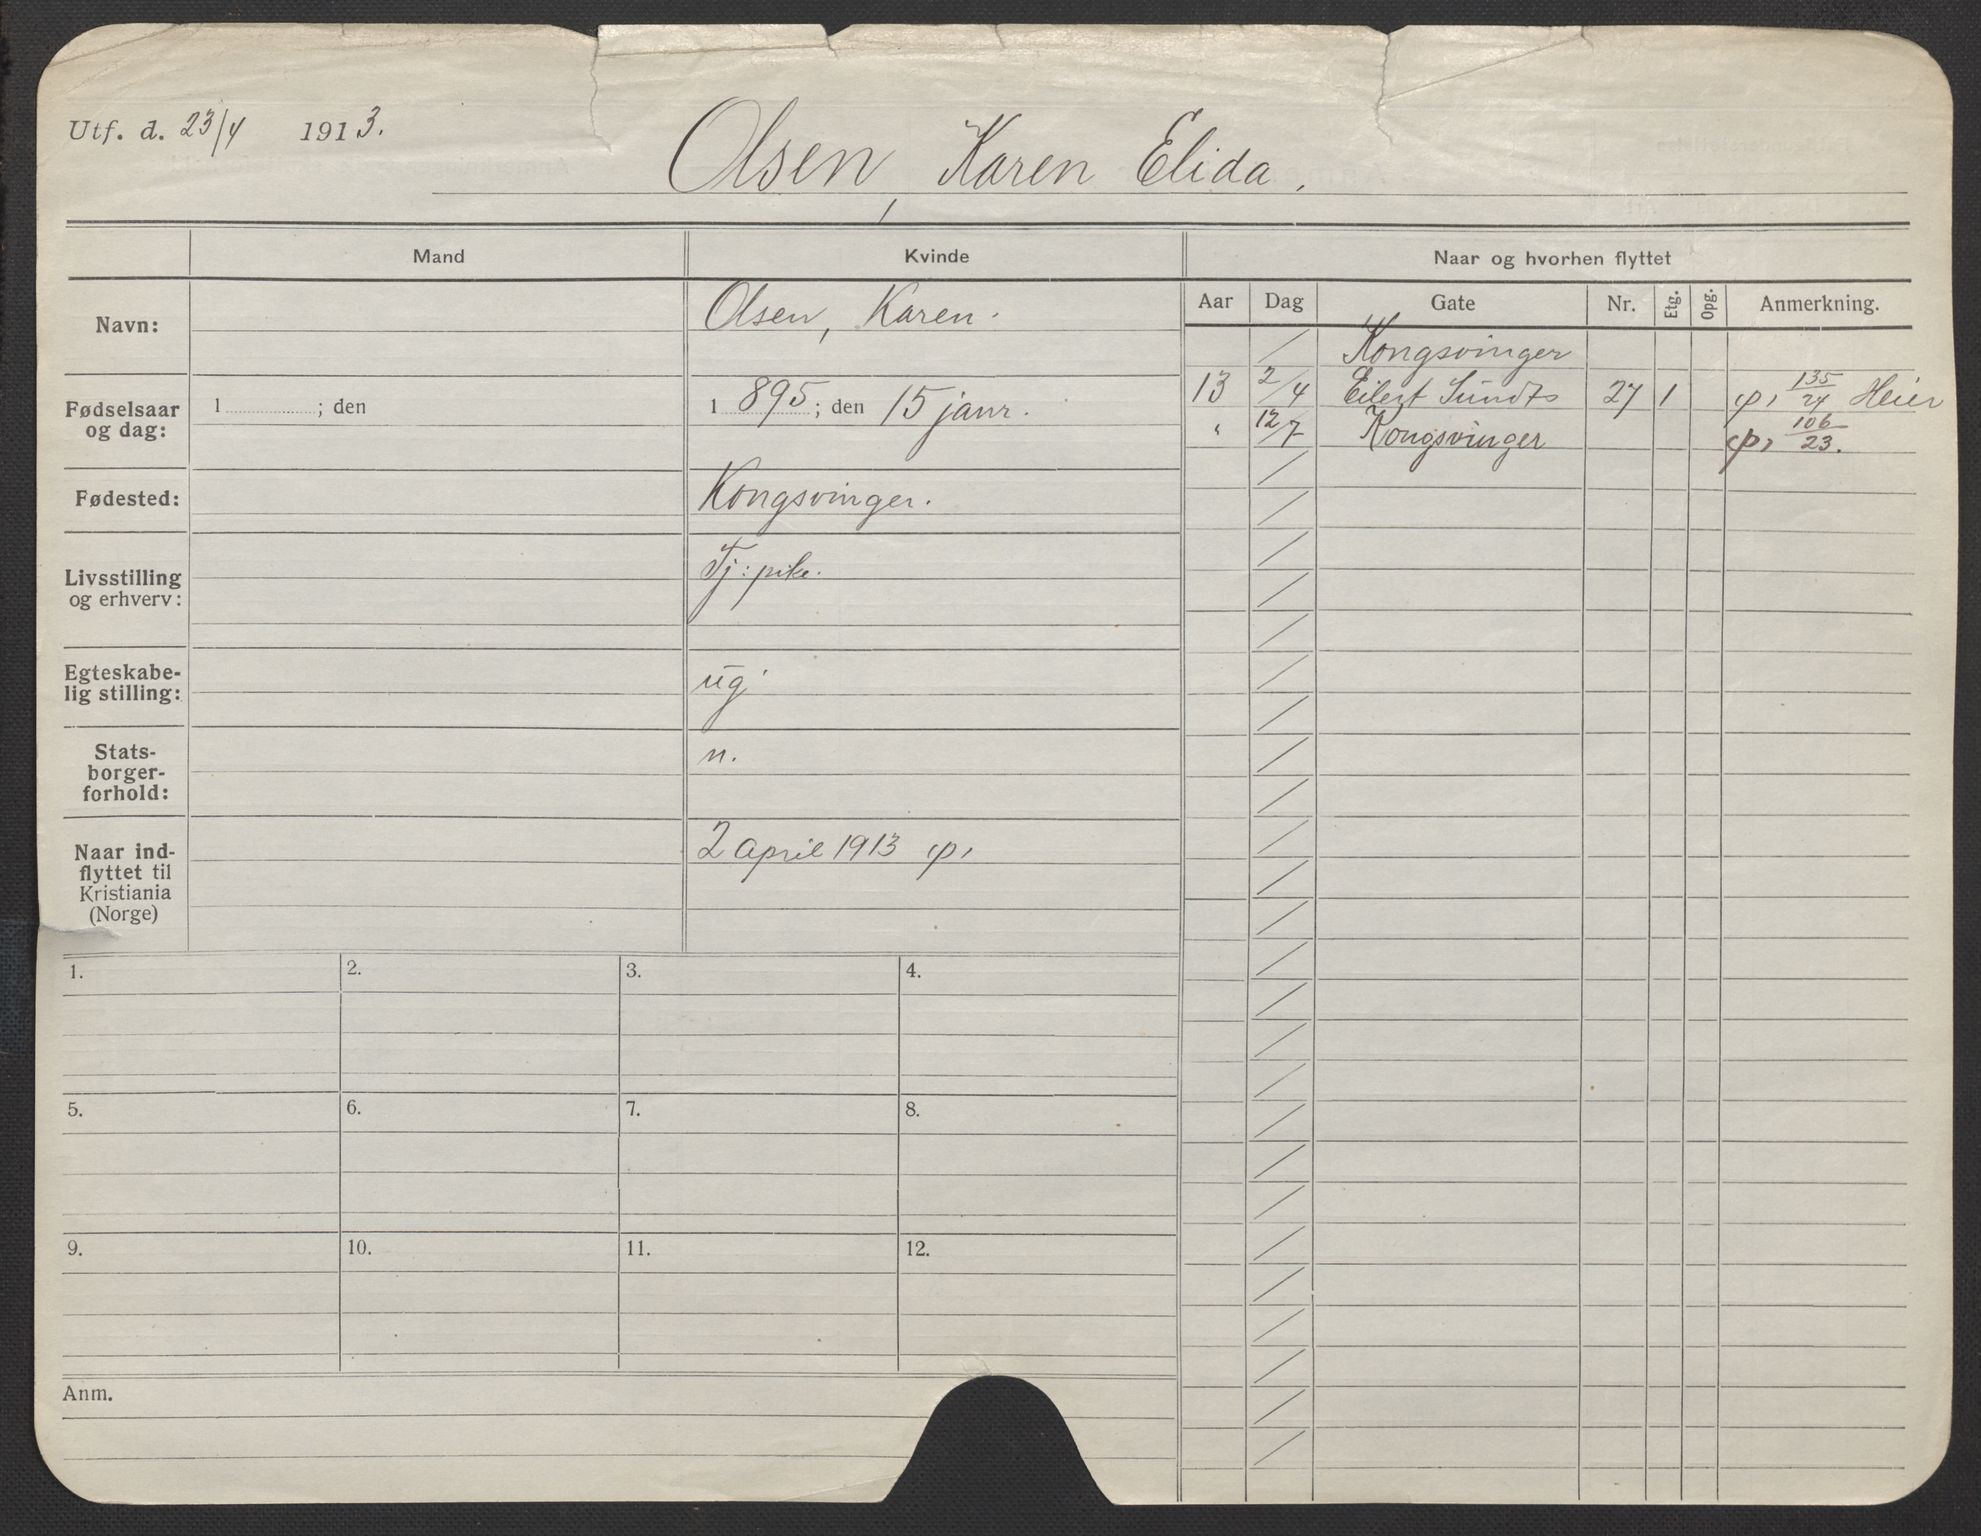 Utf. d. 23/4 1913.
Olsen, Karen Elida.
Mand
Kvinde
Naar og hvorhen flyttet
Aar Dag Gate Nr. Etg. Opg. Anmerkning.
Navn: Olsen, Karen.
Fødselsaar og dag: 1 ; den
1895; den 15 janr.
Fødested: Kongsvinger.
Livsstilling og erhverv: Tj: pike.
Egteskabe-
lig stilling: ug.
Stats-
borger-
forhold: n.
Naar ind-
flyttet til
Kristiania
(Norge) 2 april 1913 p,
/ Kongsvinger
13 2/4 Eilert Sundts 27 1 p, 135/24 Heier
" 12/7 Kongsvinger p, 106/23.
1. 2. 3. 4.
5. 6. 7. 8.
9. 10. 11. 12.
Anm.